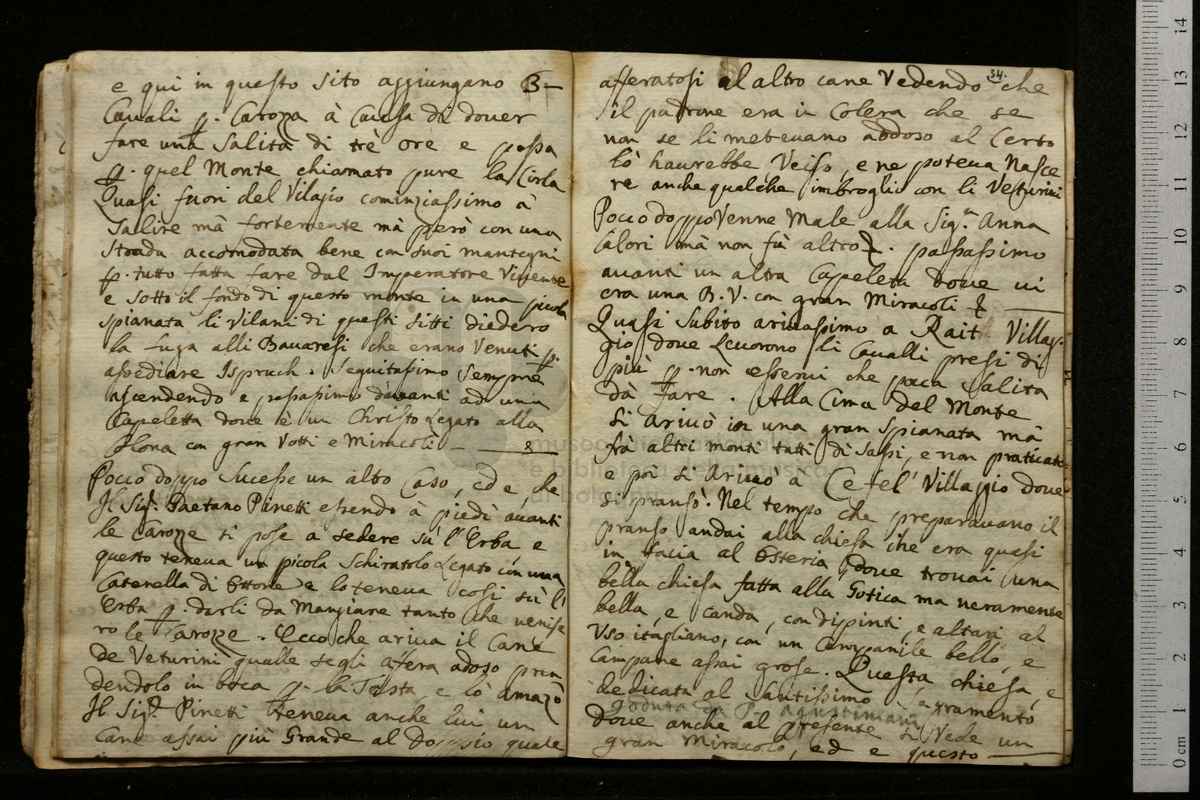 e qui in questo sito aggiungano 3-
Cavali p. Carozza à Causa di dover
fare una Salita di trè ore e passa
p. quel Monte chiamato pure la Cirla
Quasi fuori del Vilagio cominziassimo à
Salire mà fortemente mà però con una
strada accomodata bene con suoi mantegni
p. tutto fatta fare dal Imperatore Vivente
e sotto il fondo di questo monte in una picola
spianata li Vilani di questi sitti diedero
la fuga alli Bavaresi che erano Venuti p.
assediare Ispruch. Seguitassimo sempre
ascendendo e passassimo davanti ad una
Capeletta dove vè un Christo Legato alla
Colona con gran Votti e Miracoli &
Pocco doppo Sucesse un altro Caso, ed e che
Il Sig.r Gaetano Pinetti essendo à piedi avanti
le Carozze si pose a sedere sù l'Erba e
questo teneva un picola Schiratolo Legato con una
Catenella di Ottone e lo teneva così sù l'
Erba p. darli da Mangiare tanto che venise
ro le Carozze. Ecco che ariva il Cane
de Veturini qualle segli affera adoso pren
dendolo in boca p. la Testa, e lo amazò
Il Sig.r Pinetti teneva anche lui un
Cane assai più Grande al Doppio quale
34.
afferatosi al altro cane Vedendo che
il padrone era in Colera che se
non se li metevano addoso al Certo
lò haurebbe Veciso, e ne poteva Nasce
re anche qualche imbroglio con li Vesturini
Pocco doppo Venne Male alla Sig.ra Anna
Calori mà non fù altro &. passassimo
avanti un altra Capeleta dove vi
era una B. V. con gran Miracoli &
Quasi Subito arivassimo a Rait Villag-
gio dove Levorono li Cavalli presi di
più p. non esservi che poca Salita
dà Fare. Alla Cima del Monte
si arivò in una gran Spianata mà
frà altri monti tutti di Sassi, e non praticati
e poi si Arivò à Cefel' Villaggio dove
si pransò. Nel tempo che preparavano il
pranso andai alla chiesa che era quasi
in facia al Osteria, dove trovai una
bella chiesa fatta alla Gotica ma veramente
bella, e canda, con dipinti, e altari al
Uso itagliano, con un Campanile bello, e
Campane assai grose. Questa chiesa, e
dedicata al Santissimo Sagramento
goduta da P. Agostiniani
dove anche al presente si Vede un
gran Miracolo, ed e questo